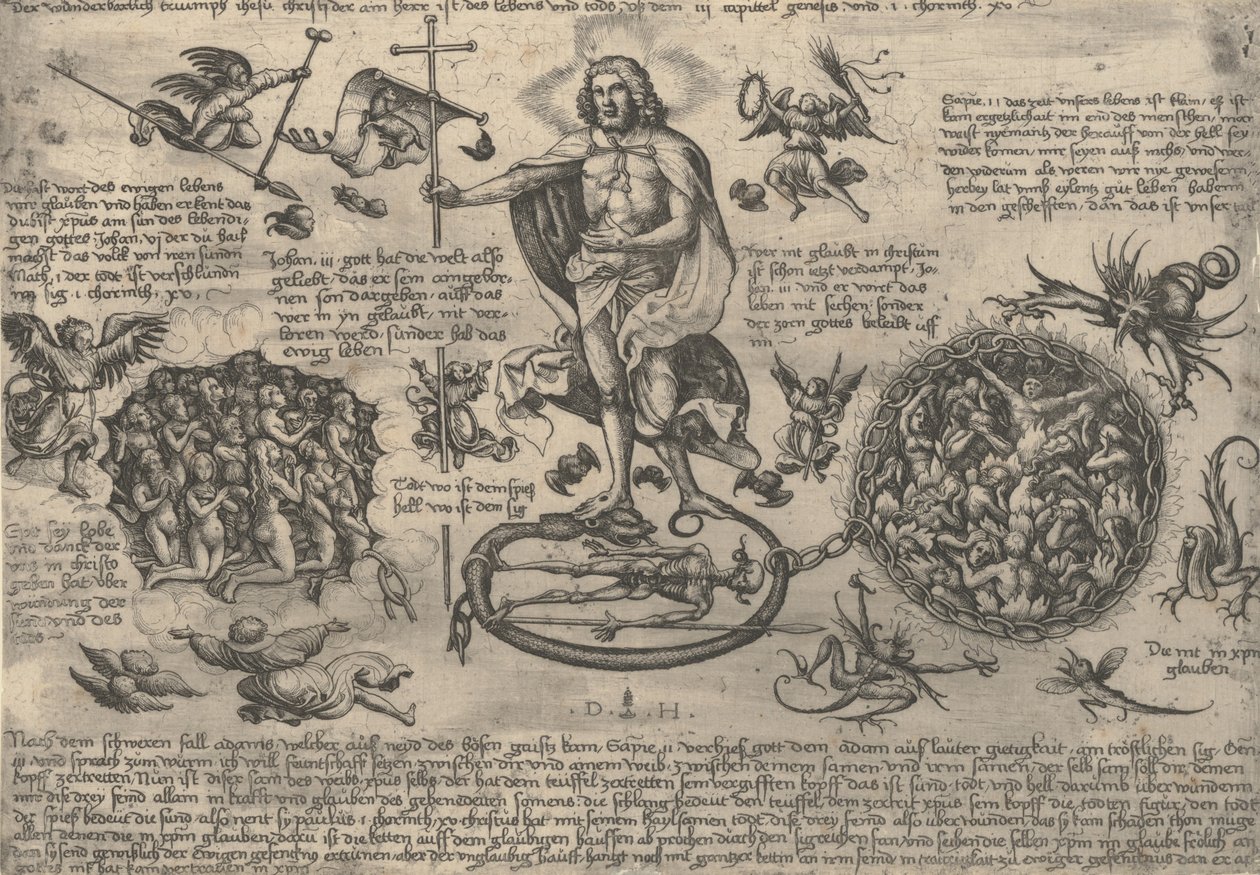 Der wunderbarlich triumph ihesu christi der ain herr ist des lebens und tods uß dem iii capittel genesis und . i . chorinth. xv ~
Du hast wort des ewigen lebens
wir glauben und haben erkent das
du bist xpus ain sun des lebendi-
gen gottes. Johan. vi der du hail
machst das volck von iren sunden
Math. i der todt ist verschlunden
im sig. i. chorinth. xv.
Johan. iii. gott hat die welt also
geliebt, das er sein aingebor-
nen son dargeben, auff das
wer in yn gelaubt, nit ver-
loren werd, sunder hab das
ewig leben
Sapie. ii das zeit unsers lebens ist klain, eß ist
kain ergetzlichait im end des menschen, man
waist nyemantz der herauff von der hell sey
wider komen, mir seyen auß nichs, und wer-
den widerum als weren wir nye gewesenn
herbey lat unns eylentz gut leben haben
in den geschefften, dan das ist unser tail
Wer nit glaubt in christum
ist schon ietzt verdampt. Jo-
han. iii und er wirt das
leben nit sechen, sonder
der zorn gottes beleibt uff
im ~
Todt wo ist dein spieß
hell wo ist dein sig
Gott sey lobe
und danck der
uns in christo
geben hat uber
windung der
sünd und des
tods ~
Die nit in xpm
glauben
. D . H .
Nach dem schweren fall adams, welcher auß neyd des bösen gaistz kam, Sapie. ii verhieß gott dem adam auß lauter gietigkait, ain tröstlichen sig, Gen
iii. und sprach zum wurm, ich will feuntschaft setzen, zwischen dir und ainem weib, zwischen deinem samen und irm samen, der selb sam soll dir, deinen
kopff zertretten, Nun ist diser sam des weibs, xpus selbs, der hat dem teuffel zertretten sein vergifften kopff das ist sund, todt, und hell, darumb uberwundenn
mir dise drey feind allain in krafft und glauben des gebenedeiten somens: die schlang bedeut den teuffel, dem zertrit xpus sein kopff die todten figur, den todt
der spieß bedeut die sund, also nent sy paulus. i. chorinth. xv. christus hat mit seinem haylsamen todt, dise drey feind also uberwunden, das sy kain schaden thon muge
allen denen die in xpm glauben, darum ist die ketten auff dem glaubigen hauffen ab prochen durch den sigreichen fan, und seihen die selben xpm im glaube frölich an
dan sy send gewißlich der ewigen gefencknus extrunen, aber der unglaubig hauff, hangt noch mit gantzer kettin an irm feind in traurigkait zu ewiger gefengknus dan er an
gottes